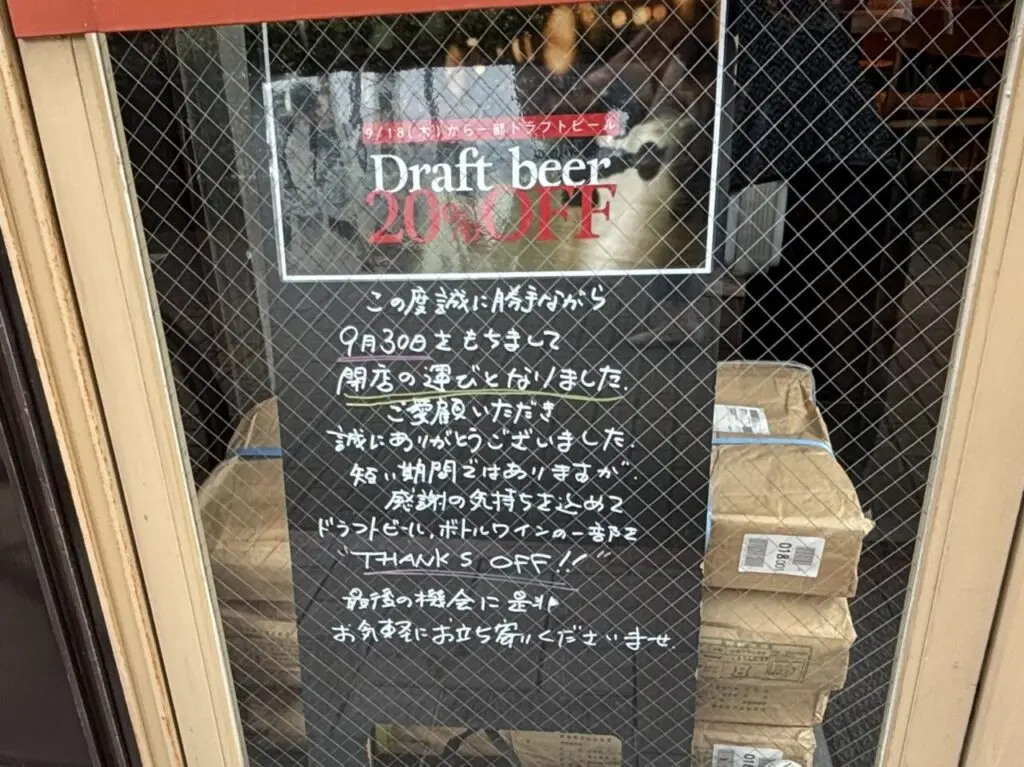 9/18(木)から一部ドラフトビール
Draft beer
20%OFF
この度誠に勝手ながら
9月30日をもちまして
閉店の運びとなりました.
ご愛顧いただき
誠にありがとうございました.
短い期間ではありますが
感謝の気持ちを込めて
ドラフトビール,ボトルワインの一部を
"THANKS OFF!!"
最後の機会に是非
お気軽にお立ち寄りくださいませ.
018
018